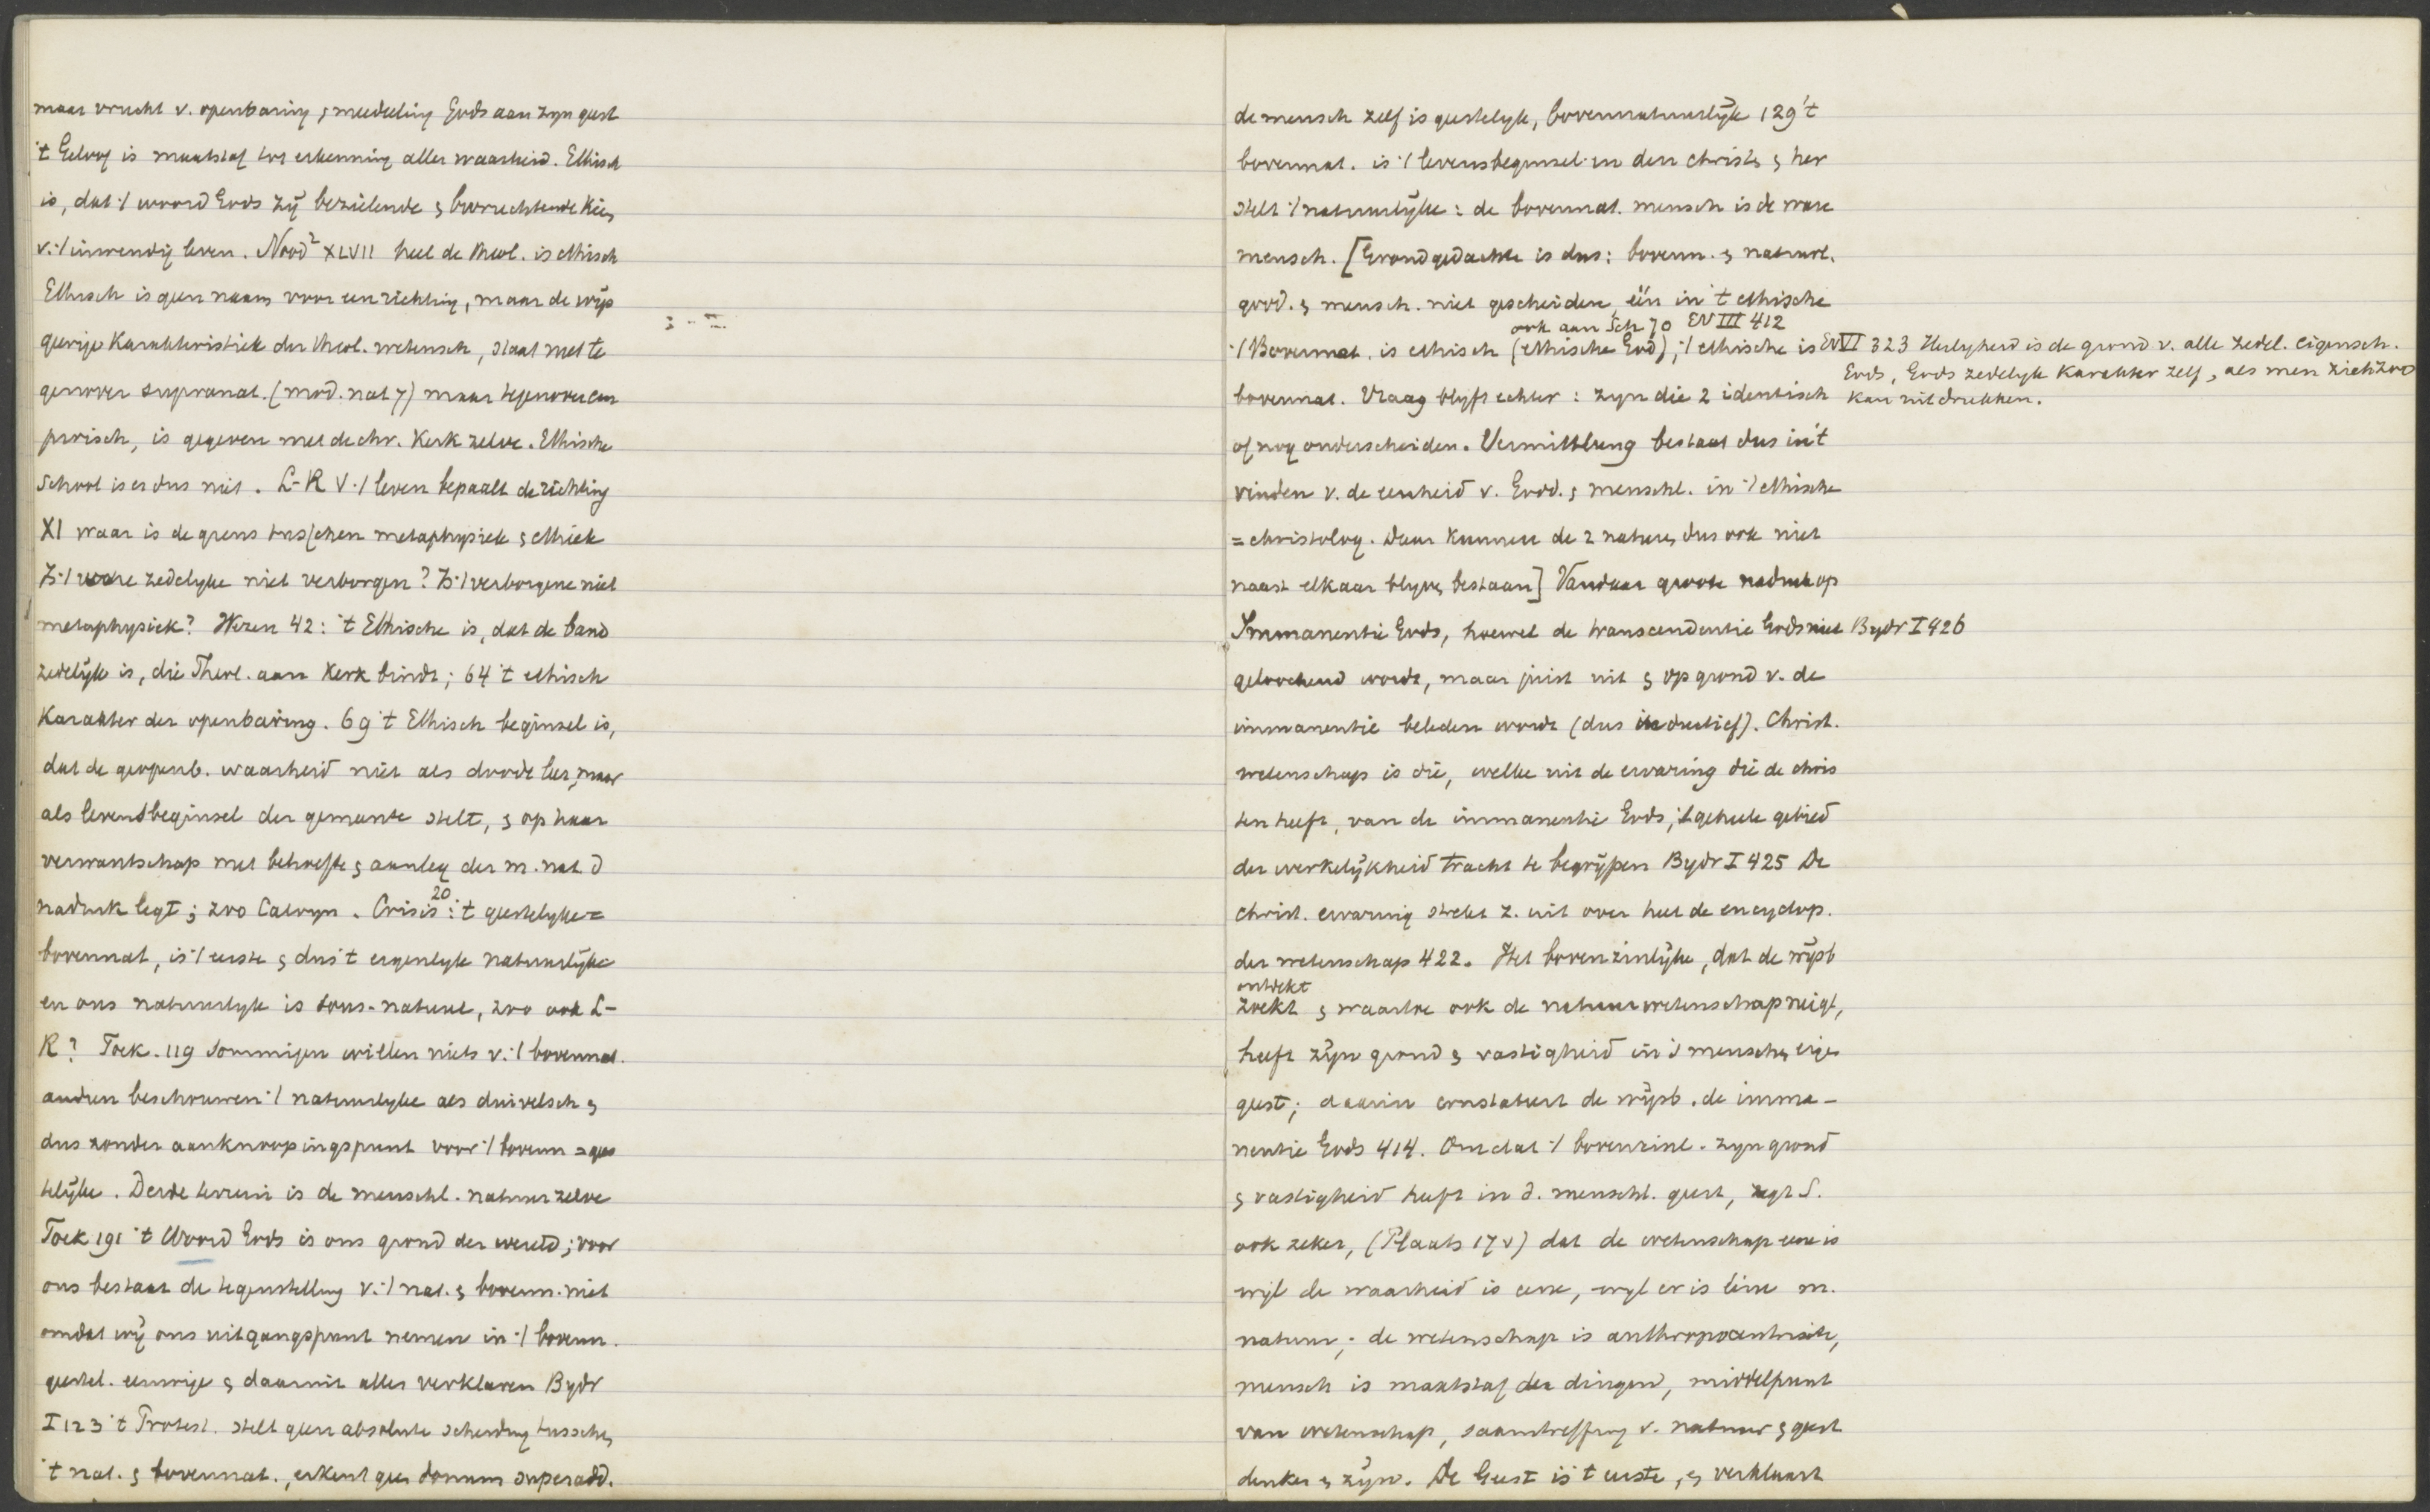 maar vrucht v. openbaring & meedeeling Gods aan zyn geest
't Geloof is maatstaf ter erkenning aller waarheid. Ethisch
is, dat 't woord Gods zij bezielende & bevruchtende kiem
v. 't inwendig leven. Nood² XLVII heel de theol. is ethisch
Ethisch is geen naam voor een richting, maar de wijs
geerige karakteristiek der theol. wetensch, staat niet te
genover supranat. (mod. nat 7) maar tegenover em
pirisch, is gegeven met de chr. Kerk zelve. Ethische
School is er dus niet. L-R V 't leven bepaalt de richting
XI waar is de grens tusschen metaphysiek & ethiek
Is 't ware zedelyke niet verborgen? Is 't verborgene niet
metaphysiek? Wezen 42: 't Ethische is, dat de band
zedelijk is, die Theol. aan Kerk bindt; 64 't ethisch
Karakter der openbaring. 69 't Ethisch beginsel is,
dat de geopenb. waarheid niet als doode leer, maar
als levensbeginsel der gemeente stelt, & op haar
verwantschap met behoefte & aanleg der m. nat. d
nadruk legt; zoo Calvyn. Crisis 20: 't geestelyke =
bovennat, is 't eerste & dus 't eigenlyk natuurlijke
en ons natuurlyk is sous-naturel, zoo ook L-
R? Toek. 119 Sommigen willen niets v. 't bovennat.
andren beschouwen 't natuurlyke als duivelsch &
dus zonder aanknoopingspunt voor 't bovenn = gees
telijke. Derde terrein is de menschl. natuur zelve
Toek 191 't Woord Gods is ons grond der wereld; voor
ons bestaat de tegenstelling v. 't nat. & bovenn. niet
omdat wij ons uitgangspunt nemen in 't bovenn.
geestel. eeuwige & daaruit alles verklaren Bydr
I 123 't Protest. stelt geen absolute scheiding tusschen
't nat. & bovennat., erkent geen donum superadd.
de mensch zelf is geestelyk, bovennatuurlijk 129 't
bovennat. is 't levensbeginsel in den christen & her
stelt 't natuurlijke: de bovennat. mensch is de ware
mensch. [Grondgedachte is dus: bovenn. & natuurl.
godd. & mensch. niet gescheiden, één in 't ethische
ook aan Sch 70 EV III 412
't Bovennat. is ethisch (ethische God), 't ethische is
bovennat. Vraag blyft echter: zyn die 2 identisch
of nog onderscheiden. Vermittlung bestaat dus in 't
vinden v. de eenheid v. Godd. & menschl. in 't ethische
= christolog. Daar kunnen de 2 naturen dus ook niet
naast elkaar blyven bestaan] Vandaar groote nadruk op
Immanentie Gods, hoewel de transcendentie Gods niet
geloochend wordt, maar juist uit & op grond v. de
immanentie beleden wordt (dus inductief). Christ.
wetenschap is die, welke uit de ervaring die de chris
ten heeft, van de immanentie Gods, 't geheele gebied
der werkelijkheid tracht te begrijpen Bydr I 425 De
christ. ervaring strekt z. uit over heel de encyclop.
der wetenschap 422. Het bovenzinlijke, dat de wijsb
ontdekt
zoekt & waartoe ook de natuurwetenschap neigt,
heeft zijn grond & vastigheid in 's menschen eigen
geest; daarin constateert de wijsb. de imma-
nentie Gods 414. Omdat 't bovenzinl. zyn grond
& vastigheid heeft in d. menschl. geest, zegt S.
ook zeker, (Plaats 17 v) dat de wetenschap eene is
wijl de waarheid is eene, wyl er is ééne m.
natuur; de wetenschap is anthropocentrisch,
mensch is maatstaf der dingen, middelpunt
van wetenschap, saamtreffing v. natuur & geest
denken & zijn. De Geest is 't eerste, & verklaart
EV VI 323 Heiligheid is de grond v. alle zedel. eigensch.
Gods, Gods zedelyk karakter zelf, als men zich zoo
kan uitdrukken.
Bydr I 426